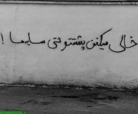 خالی میکنن پشتتو حتی سلیما !